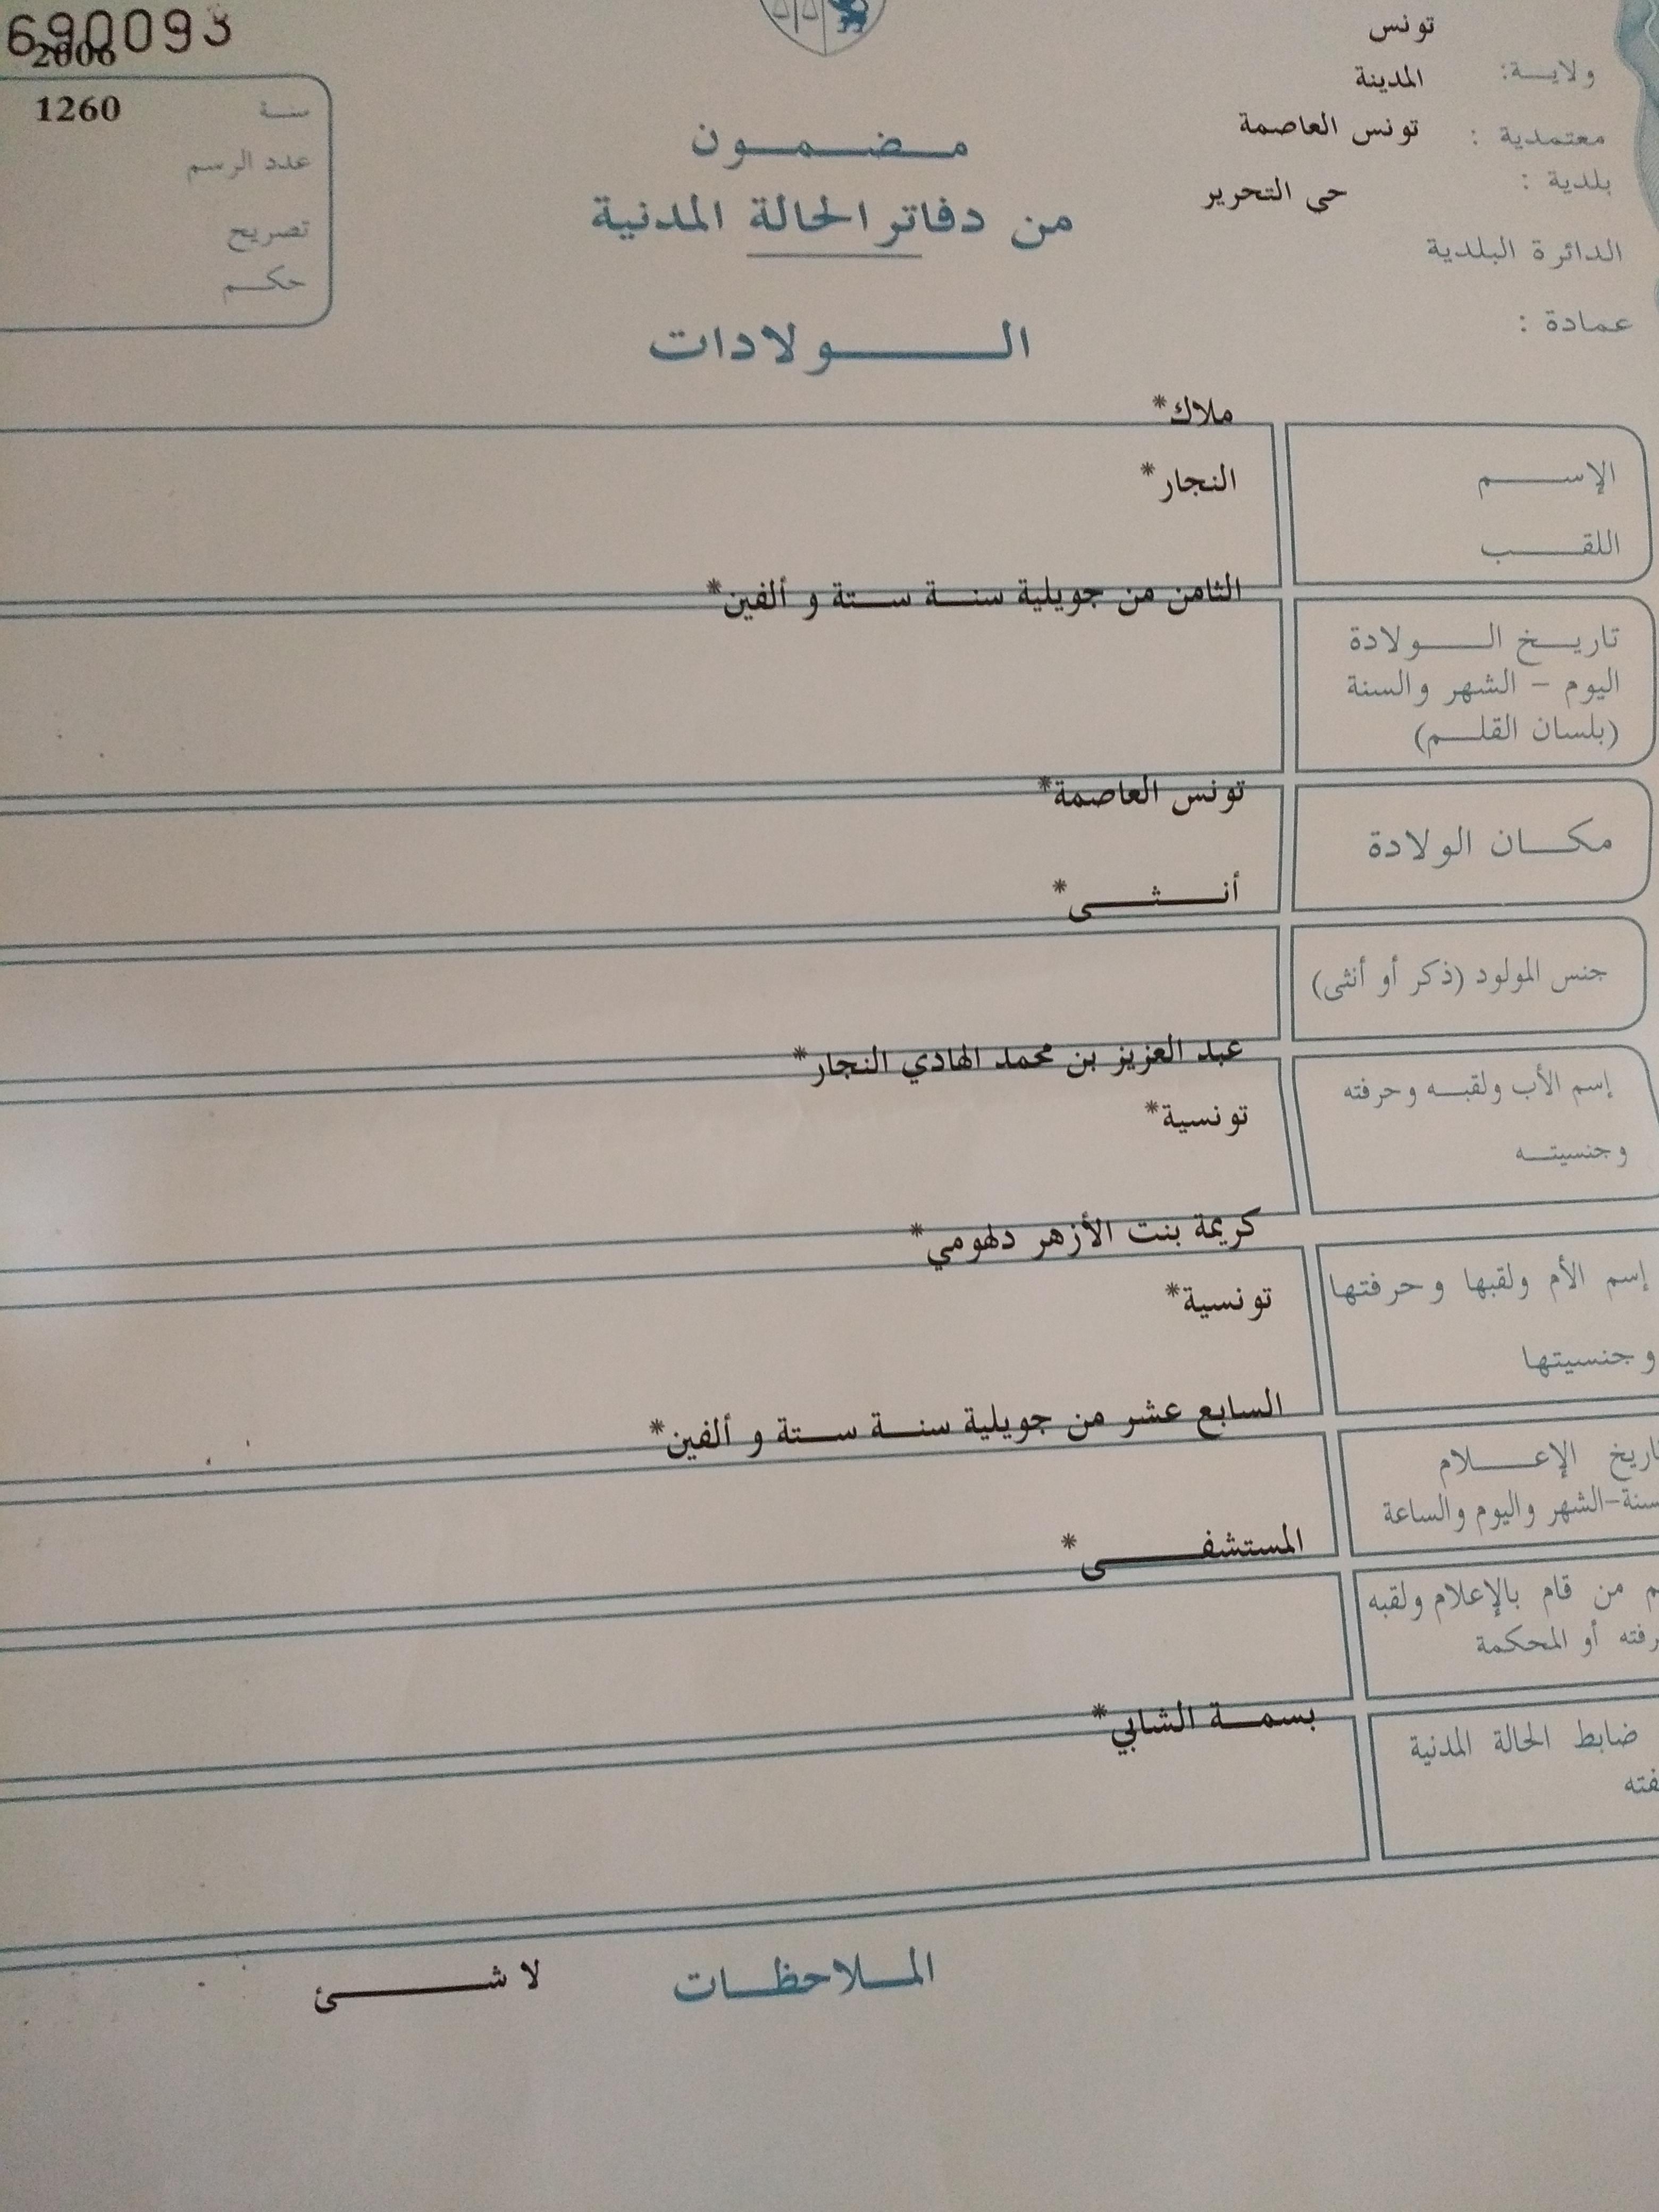 690093
2006
1260
سنة
عدد الرسم
تصريح
حكم
تونس
ولاية:
المدينة
معتمدية :
تونس العاصمة
بلدية :
حى التحرير
الدائرة البلدية
عمادة :
مضمون
من دفاتر الحالة المدنية
الولادات
ملاك*
الإسم
النجار*
اللقب
الثامن من جويلية سنة ستة و ألفين*
تاريخ الولادة
اليوم - الشهر والسنة
(بلسان القلم)
تونس العاصمة*
مكان الولادة
أنثى*
جنس المولود (ذكر أو أنثى)
عبد العزيز بن محمد الهادي النجار*
إسم الأب ولقبه وحرفته
تونسية*
وجنسيته
كريمة بنت الأزهر دلهومي*
إسم الأم ولقبها وحرفتها
تونسية*
وجنسيتها
السابع عشر من جويلية سنة ستة و ألفين*
الإعلام
الشهر واليوم والساعة
المستشفى*
من قام بالإعلام ولقبه
أو المحكمة
بسمة الشابي*
ضابط الحالة المدنية
الملاحظات
لا شئ